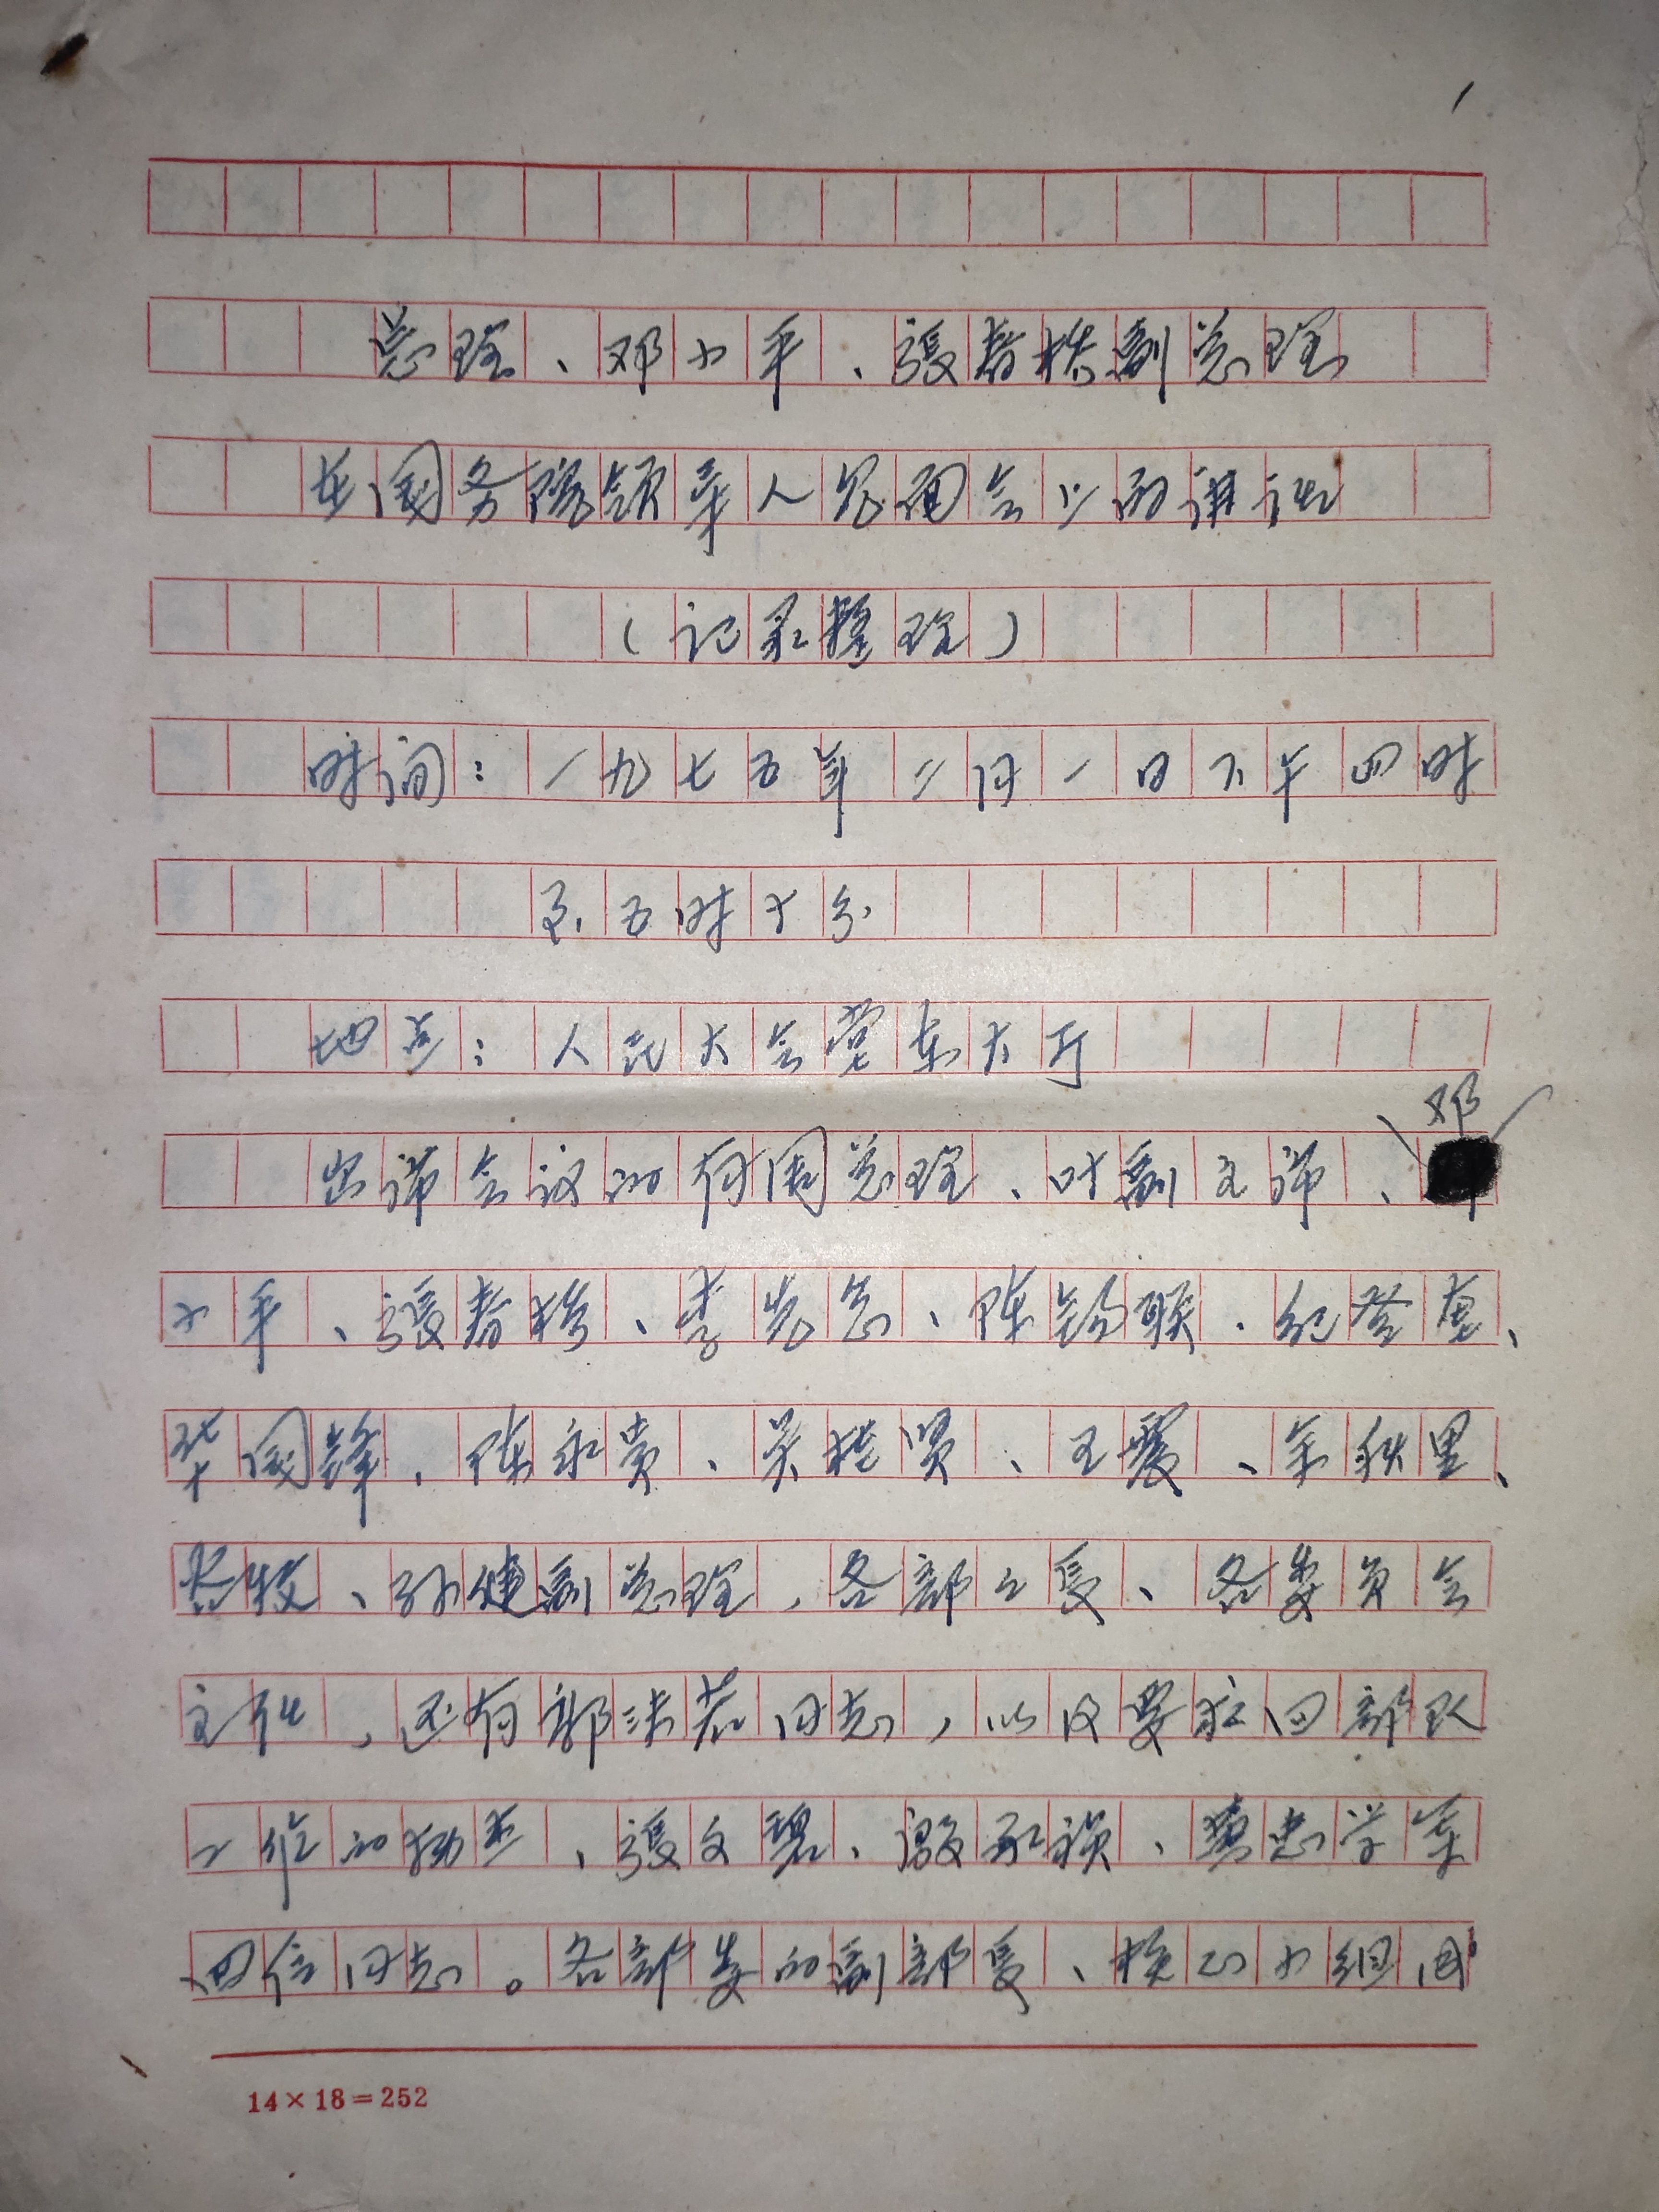 1
总理、邓小平、張春桥副总理
在国务院领导人见面会上的讲话
(记录整理)
时间:一九七五年二月一日下午四时
至五时十分
地点:人民大会堂东大厅
邓
出席会议的有周总理、叶副主席、
小平、張春桥、李先念、陈锡联、纪登奎、
华国锋、陈永贵、吴桂贤、王震、余秋里、
谷牧、孙健副总理,各部部長、各委员会
主任,还有郭沫若同志,以及要社回部队
工作的
張文碧、
四位同志。各部委的副部長、核心小组成
14×18=252